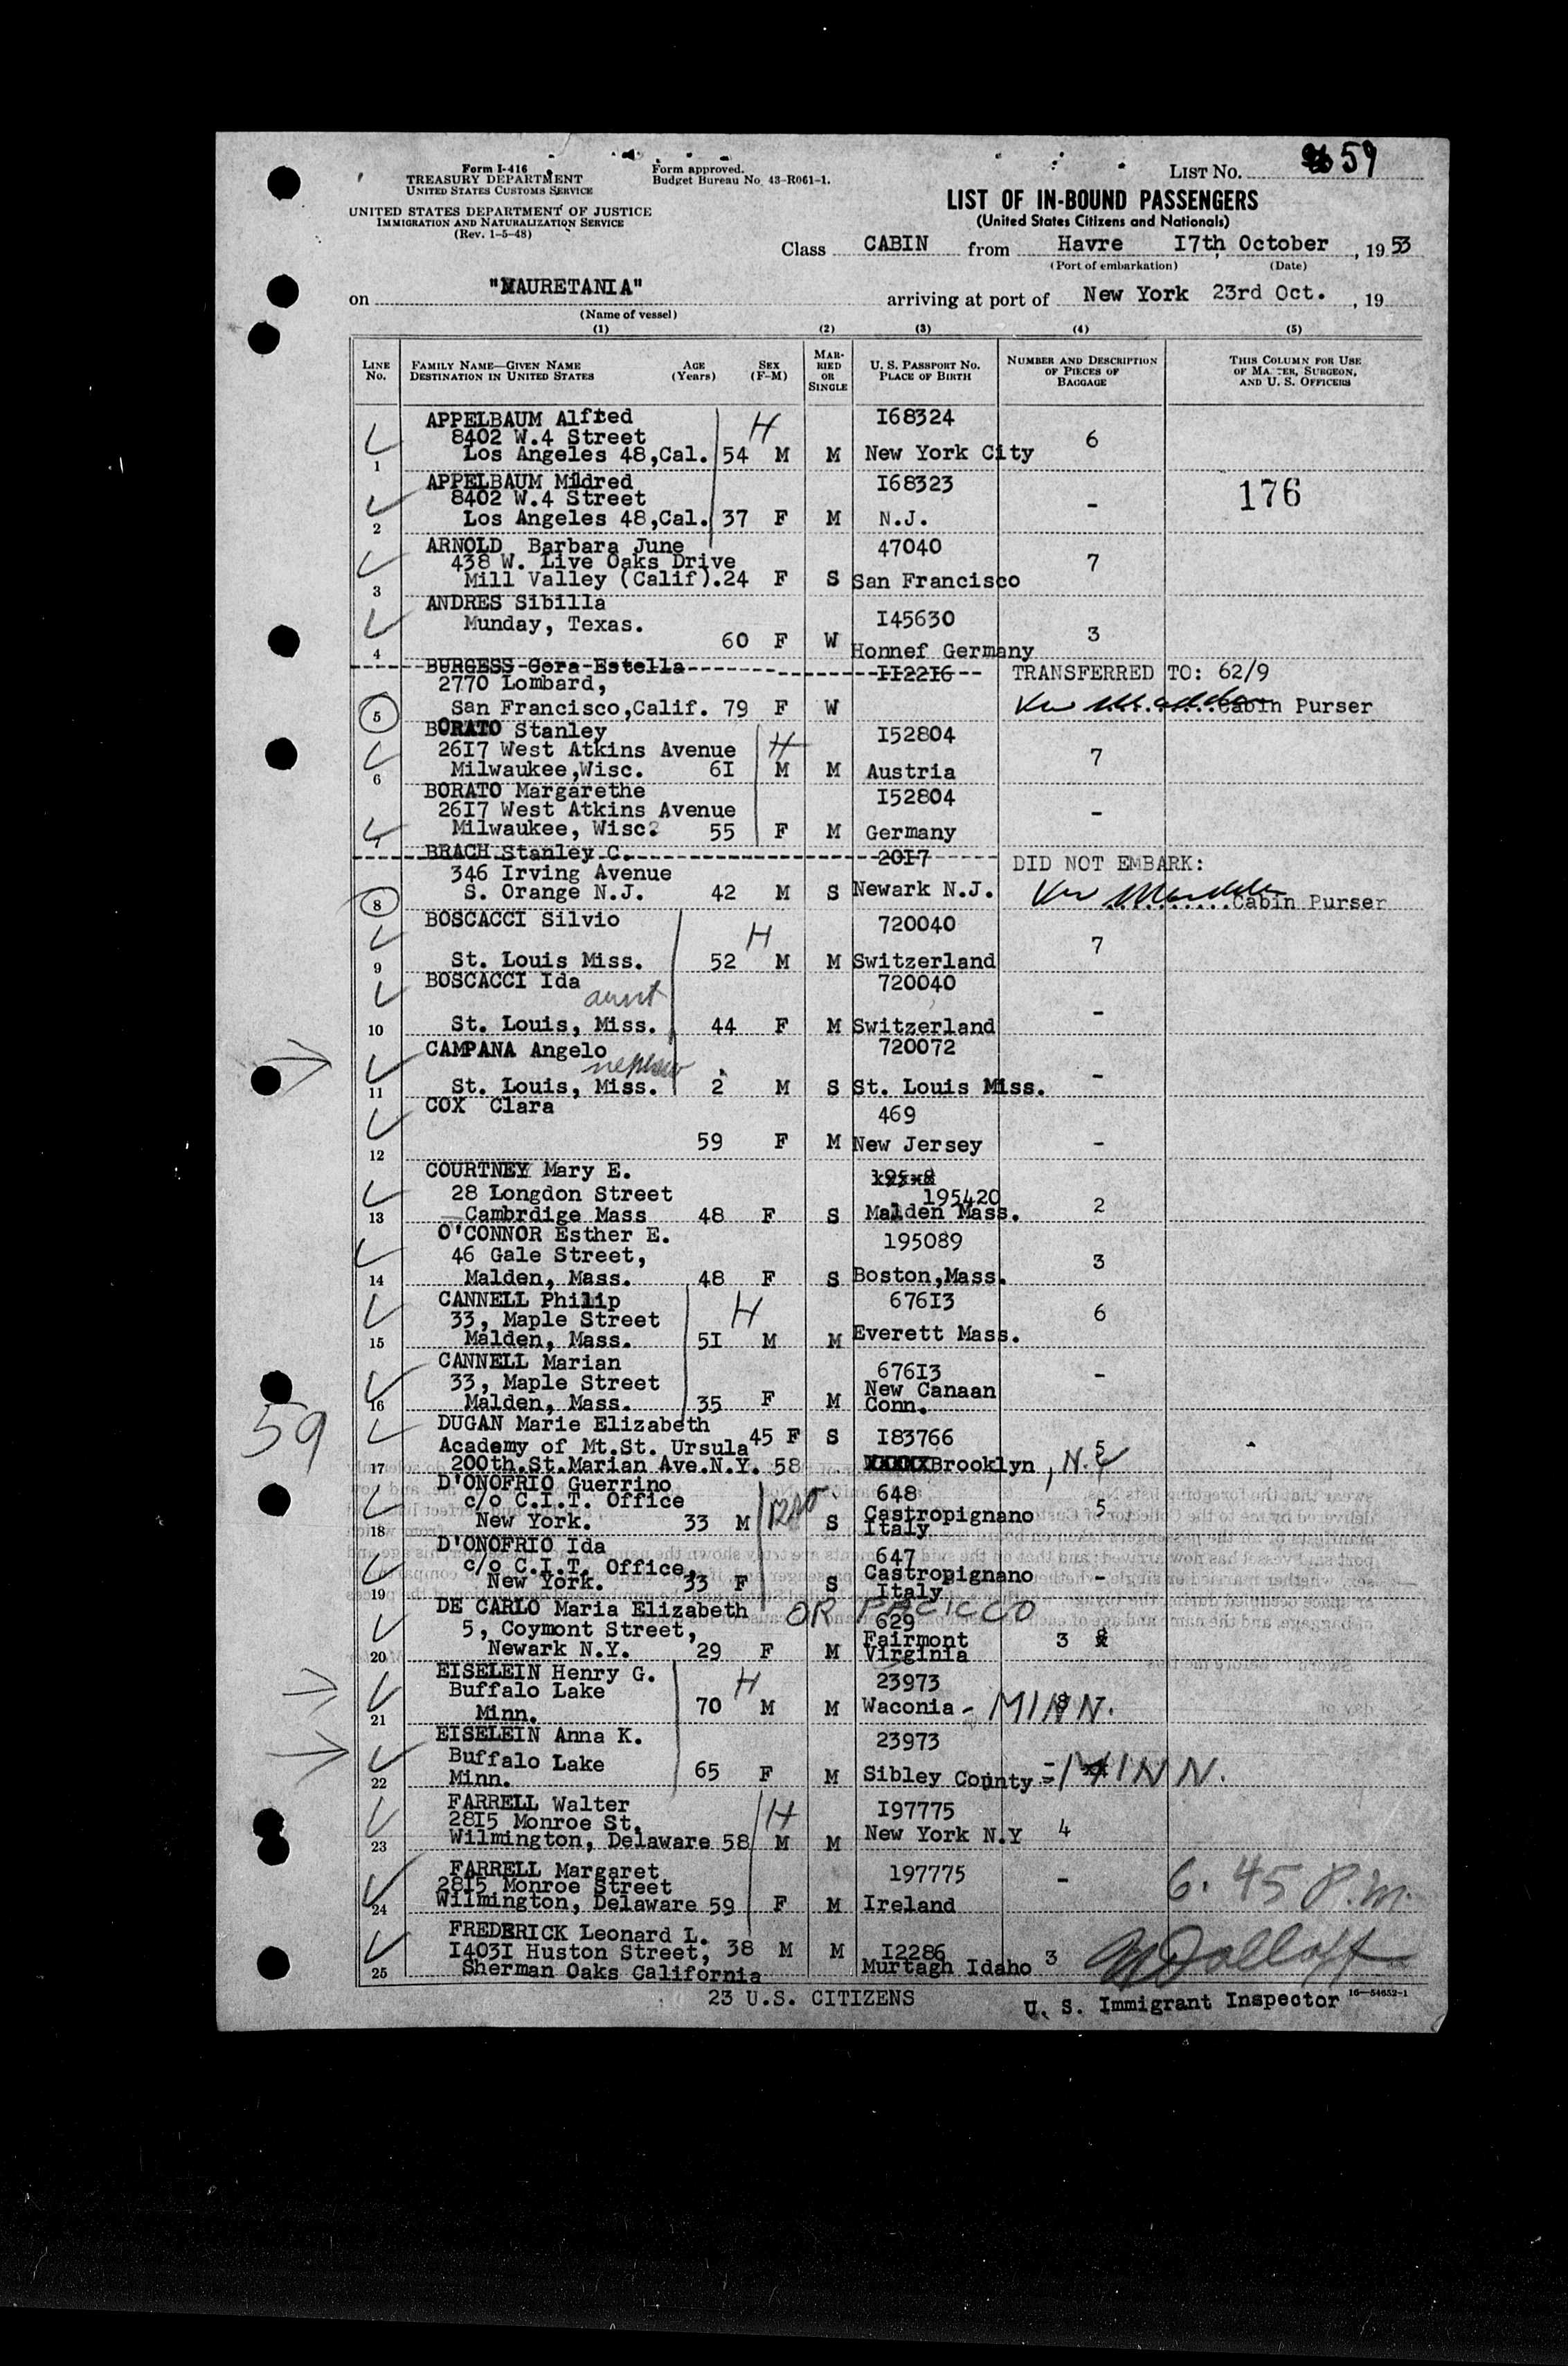 Form I-416
TREASURY DEPARTMENT
UNITED STATES CUSTOMS SERVICE
UNITED STATES DEPARTMENT OF JUSTICE
IMMIGRATION AND NATURALIZATION SERVICE
(Rev. 1-5-48)
Form approved.
Budget Bureau No. 43-R061-1.
LIST No. 59
LIST OF IN-BOUND PASSENGERS
(United States Citizens and Nationals)
Class CABIN from Havre I7th October, 1953
(Port of embarkation) (Date)
on "MAURETANIA" arriving at port of New York 23rd Oct., 19
(Name of vessel)
(1) (2) (3) (4) (5)
LINE No. FAMILY NAME—GIVEN NAME DESTINATION IN UNITED STATES AGE (Years) SEX (F-M) MARRIED OR SINGLE U. S. PASSPORT NO. PLACE OF BIRTH NUMBER AND DESCRIPTION OF PIECES OF BAGGAGE THIS COLUMN FOR USE OF MASTER, SURGEON, AND U. S. OFFICERS
APPELBAUM Alfred H I68324
8402 W.4 Street 6
1 Los Angeles 48,Cal. 54 M M New York City
APPELBAUM Mildred I68323
8402 W.4 Street - 176
2 Los Angeles 48,Cal. 37 F M N.J.
ARNOLD Barbara June 47040
438 W. Live Oaks Drive 7
3 Mill Valley (Calif).24 F S San Francisco
ANDRES Sibilla I45630
Munday, Texas. 3
4 60 F W Honnef Germany
BURGESS Cora Estella II22I6 TRANSFERRED TO: 62/9
2770 Lombard,
5 San Francisco,Calif. 79 F W Cabin Purser
BORATO Stanley H I52804
26I7 West Atkins Avenue 7
6 Milwaukee,Wisc. 6I M M Austria
BORATO Margarethe I52804
26I7 West Atkins Avenue -
7 Milwaukee, Wisc. 55 F M Germany
BRACH Stanley C. 20I7 DID NOT EMBARK:
346 Irving Avenue
8 S. Orange N.J. 42 M S Newark N.J. Cabin Purser
BOSCACCI Silvio H 720040
7
9 St. Louis Miss. 52 M M Switzerland
BOSCACCI Ida 720040
aunt -
10 St. Louis, Miss. 44 F M Switzerland
CAMPANA Angelo 720072
nephew -
11 St. Louis, Miss. 2 M S St. Louis Miss.
COX Clara 469
12 59 F M New Jersey -
COURTNEY Mary E.
28 Longdon Street 195420 2
13 Cambrdige Mass 48 F S Malden Mass.
O'CONNOR Esther E. 195089
46 Gale Street, 3
14 Malden, Mass. 48 F S Boston,Mass.
CANNELL Philip H 676I3
33, Maple Street 6
15 Malden, Mass. 5I M M Everett Mass.
CANNELL Marian 676I3
33, Maple Street -
16 Malden, Mass. 35 F M New Canaan Conn.
59
DUGAN Marie Elizabeth 45 F S I83766
Academy of Mt.St. Ursula 5
17 200th.St.Marian Ave.N.Y. 58 Brooklyn, N.Y
D'ONOFRIO Guerrino 648
c/o C.I.T. Office 5
18 New York. 33 M S Castropignano Italy
D'ONOFRIO Ida 647
c/o C.I.T. Office, -
19 New York. 33 F S Castropignano Italy
DE CARLO Maria Elizabeth OR PACICCO 629
5, Coymont Street, 3
20 Newark N.Y. 29 F M Fairmont Virginia
EISELEIN Henry G. H 23973
Buffalo Lake 8
21 Minn. 70 M M Waconia - MINN.
EISELEIN Anna K. 23973
Buffalo Lake -
22 Minn. 65 F M Sibley County - MINN.
FARRELL Walter H I97775
28I5 Monroe St. 4
23 Wilmington, Delaware 58 M M New York N.Y
FARRELL Margaret 197775
28I5 Monroe Street - 6.45 P.m.
24 Wilmington, Delaware 59 F M Ireland
FREDERICK Leonard L.
I403I Huston Street, 38 M M I2286 3
25 Sherman Oaks California Murtagh Idaho
23 U.S. CITIZENS
U. S. Immigrant Inspector 16—54652-1